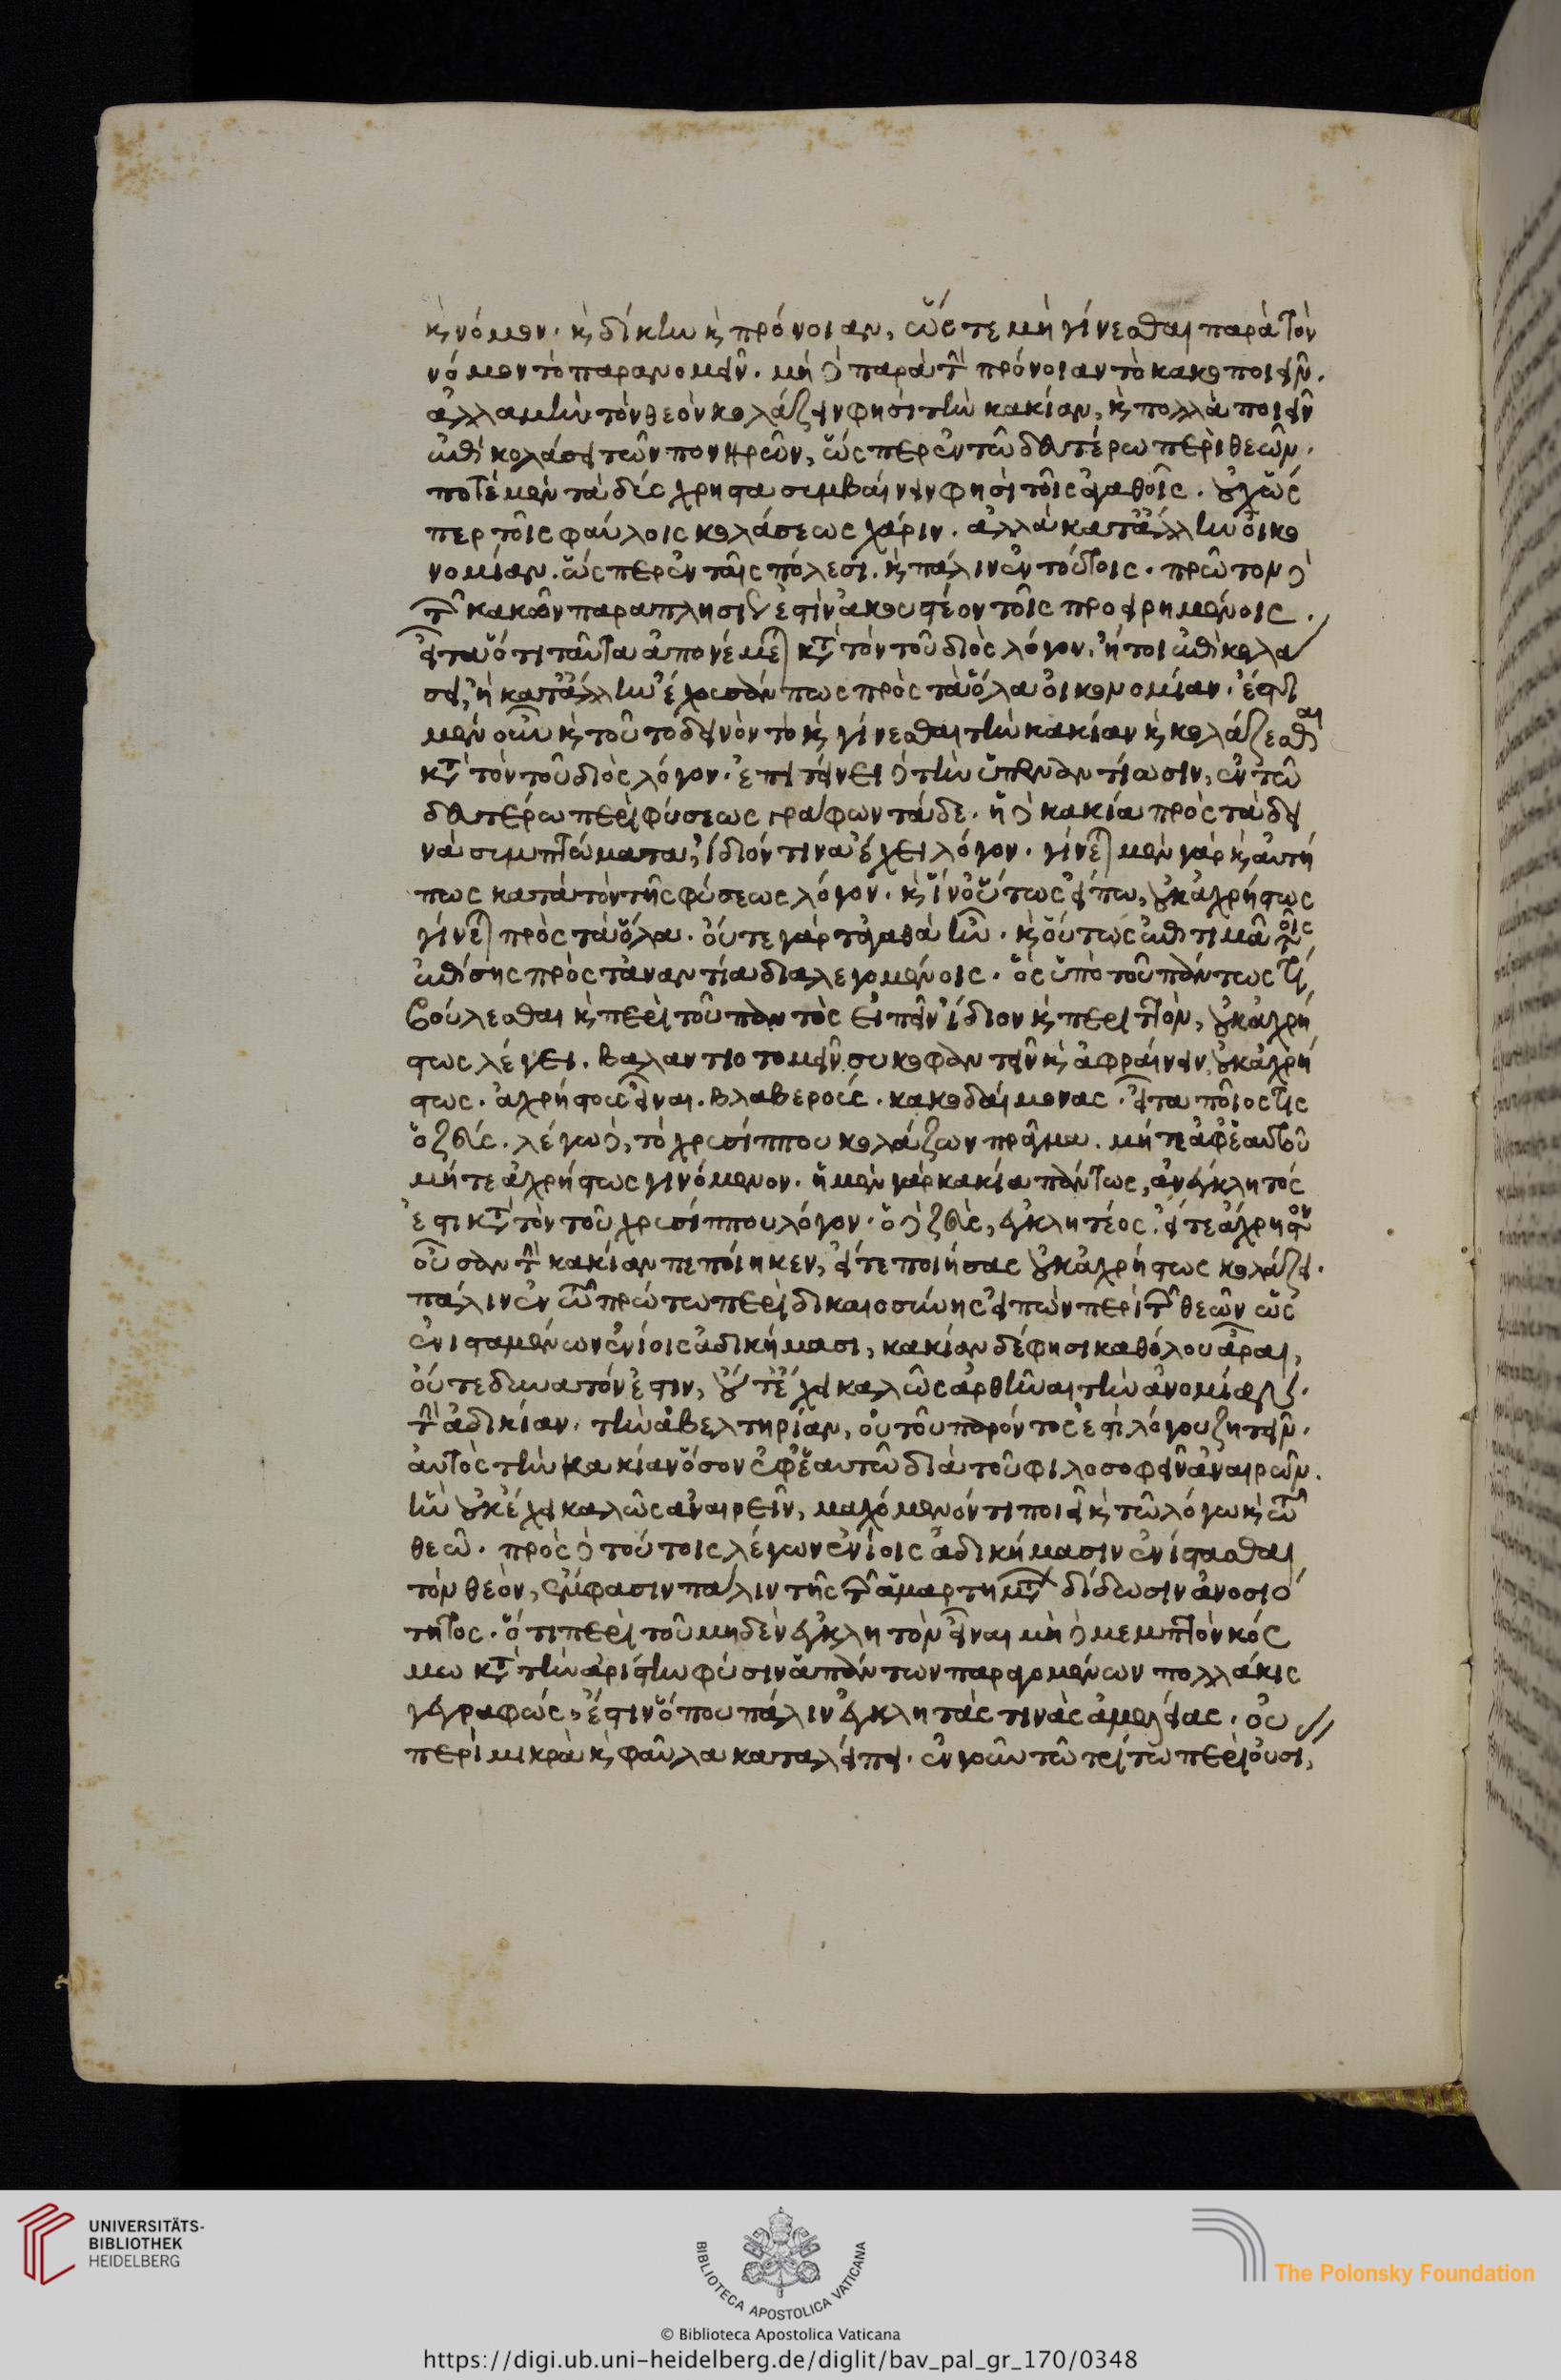 κὶ νόμον. κὶ δίκην κὶ πρόνοιαν, ὥστε μὴ γίνεσθαι παρὰ τὸν
νόμον τὸ παρανομεῖν. μὴ δὲ παρὰ τὴν πρόνοιαν τὸ κακοποιεῖν.
ἀλλα μὴν τὸν θεὸν κολάζειν φησὶ τὴν κακίαν, κὶ πολλὰ ποιεῖν
ἐπὶ κολάσει τῶν πονηρῶν, ὥσπερ ἐν τῶ δευτέρω περὶ θεῶν.
ποτὲ μὲν τὰ δύσχρηστα συμβαίνειν φησὶ τοῖς ἀγαθοῖς. οὐχ ὥσ
περ τοῖς φαύλοις κολάσεως χάριν. ἀλλὰ κατ' ἄλλην οἰκο
νομίαν. ὥσπερ ἐν ταῖς πόλεσι. κὶ πάλιν ἐν τούτοις. πρῶτον δὲ
τῶν κακῶν παραπλησίως ἐστὶν ἀκουστέον τοῖς προειρημένοις.
εἶτα ὅτι ταῦτα ἀπονέμεται κατὰ τὸν τοῦ διὸς λόγον. ἤτοι ἐπὶ κολα
σει, ἢ κατ' ἄλλην ἔχουσάν πως πρὸς τὰ ὅλα οἰκονομίαν. ἔστι
μὲν οὖν κὶ τοῦτο δεινὸν τὸ κὶ γίνεσθαι τὴν κακίαν κὶ κολάζεσθαι
κατὰ τὸν τοῦ διὸς λόγον. ἐπιτείνει δὲ τὴν ὑπεναντίωσιν, ἐν τῶ
δευτέρω περὶ φύσεως γράφων τάδε. ἡ δὲ κακία πρὸς τὰ δει
νὰ συμπτώματα, ἴδιόν τινα ἔχει λόγον. γίνεται μὲν γὰρ κὶ αὐτή
πως κατὰ τὸν τῆς φύσεως λόγον. κὶ ἵν' οὕτως εἴπω, οὐκ ἀχρήστως
γίνεται πρὸς τὰ ὅλα. οὔτε γὰρ τἀγαθὰ ἦν. κὶ οὕτως ἐπιτιμᾶ τοῖς
ἐπίσης πρὸς τἀναντία διαλεγομένοις. ὃς ὑπὸ τοῦ πάντως τι
βούλεσθαι κὶ περὶ τοῦ παντὸς εἰπεῖν ἴδιον κὶ περιττὸν, οὐκ ἀχρή
στως λέγει. βαλαντιοτομεῖν συκοφαντεῖν κὶ ἀφραίνειν, οὐκ ἀχρή
στως. ἀχρήστους εἶναι. βλαβεροὺς. κακοδαίμονας. εἶτα ποῖος τις
ὁ ζεύς. λέγω δὲ, τὸ χρυσίππου κολάζων πρᾶγμα. μήτε ἀφ' ἑαυτοῦ
μήτε ἀχρήστως γινόμενον. ἡ μὲν γὰρ κακία πάντως, ἀνέγκλητός
ἐστι κατὰ τὸν τοῦ χρυσίππου λόγον. ὁ δὲ ζεὺς, ἐγκλητέος. εἴτε ἄχρηστον
οὖσαν τὴν κακίαν πεποίηκεν, εἴτε ποιήσας οὐκ ἀχρήστως κολάζει.
πάλιν ἐν τῶ πρώτω περὶ δικαιοσύνης εἰπὼν περὶ τῶν θεῶν ὡς
ἐνισταμένων ἐνίοις ἀδικήμασι, κακίαν δέ φησι καθόλου ἆραι,
οὔτε δυνατόν ἐστιν, οὔτ' ἔχει καλῶς ἀρθῆναι τὴν ἀνομίαν.
τὴν ἀδικίαν. τὴν ἀβελτηρίαν, οὐ τοῦ παρόντος ἐστὶ λόγου ζητεῖν.
αὐτὸς τὴν κακίαν ὅσον ἐφ' ἑαυτῶ διὰ τοῦ φιλοσοφεῖν ἀναιρῶν.
ἣν οὐκ ἔχει καλῶς ἀναιρεῖν, μαχόμενόν τι ποιεῖ κὶ τῶ λόγω κὶ τῶ
θεῶ. πρὸς δὲ τούτοις λέγων ἐνίοις ἀδικήμασιν ἐνίστασθαι
τὸν θεὸν, ἔμφασιν πάλιν τῆς τῶν ἁμαρτημάτων δίδωσιν ἀνοσιό
τητος. ὅτι περὶ τοῦ μηδὲν ἐγκλητὸν εἶναι μὴ δὲ μεμπτὸν κόσ
μω κατὰ τὴν ἀρίστην φύσιν ἁπάντων παραγομένων πολλάκις
γεγραφὼς, ἔστιν ὅπου πάλιν ἐγκλητάς τινὰς ἀμελείας. οὐ
περὶ μικρὰ κὶ φαῦλα καταλείπει. ἐν γοῦν τῶ τρίτω περὶ οὐσί,
UNIVERSITÄTS-
BIBLIOTHEK
HEIDELBERG
BIBLIOTECA APOSTOLICA VATICANA
© Biblioteca Apostolica Vaticana
The Polonsky Foundation
https://digi.ub.uni-heidelberg.de/diglit/bav_pal_gr_170/0348